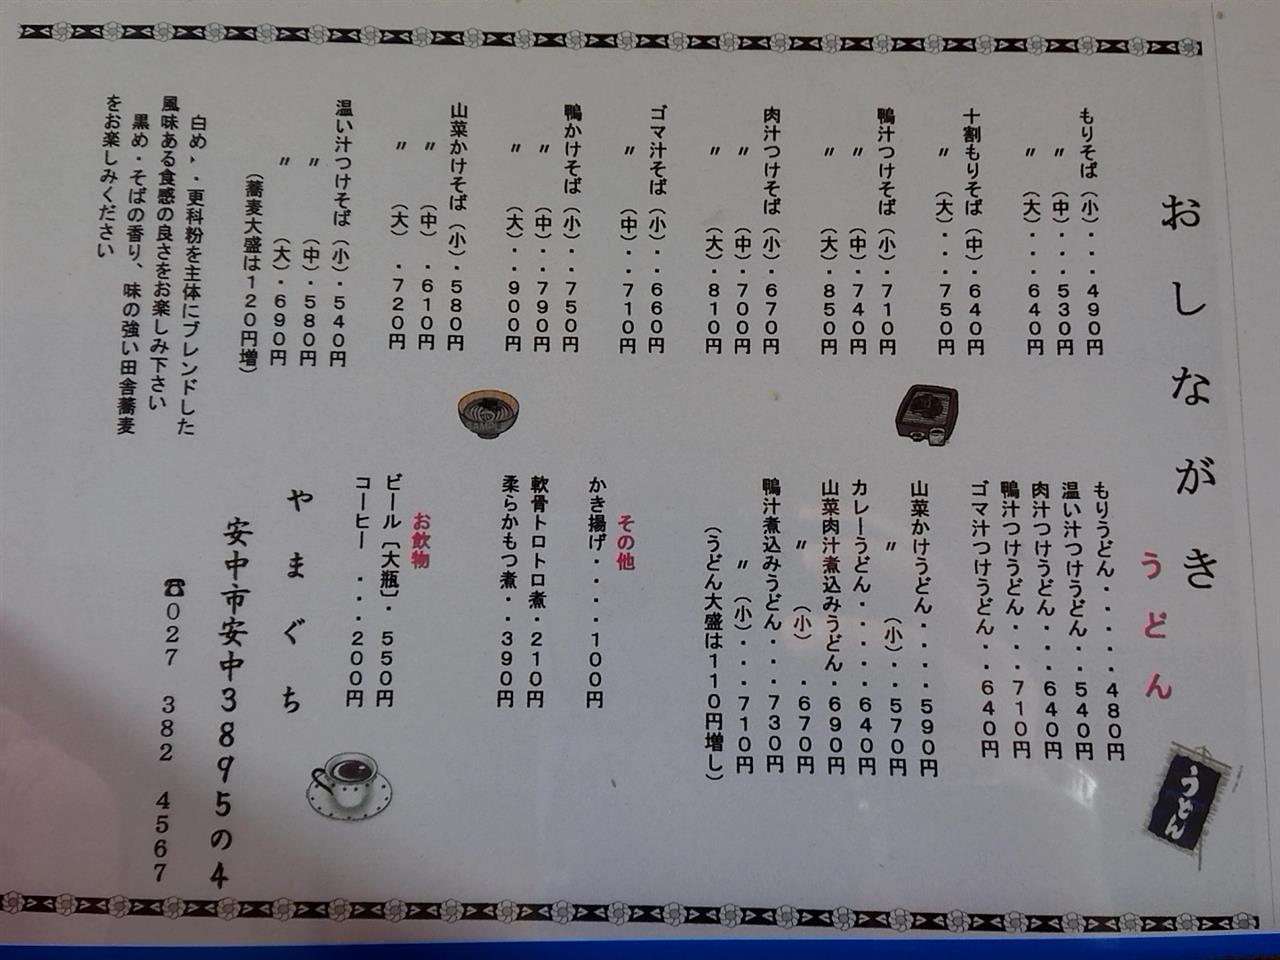 おしながき
もりそば（小）・・・４９０円
〃（中）・・・５３０円
〃（大）・・・６４０円
十割もりそば（中）・６４０円
〃（大）・・・７５０円
鴨汁つけそば（小）・７１０円
〃（中）・・７４０円
〃（大）・・８５０円
肉汁つけそば（小）・６７０円
〃（中）・・７００円
〃（大）・・８１０円
ゴマ汁そば（小）・・６６０円
〃（中）・・７１０円
鴨かけそば（小）・・７５０円
〃（中）・・７９０円
〃（大）・・９００円
山菜かけそば（小）・５８０円
〃（中）・６１０円
〃（大）・７２０円
温い汁つけそば（小）・５４０円
〃（中）・５８０円
〃（大）・６９０円
（蕎麦大盛は１２０円増）
白め、・更科粉を主体にブレンドした
風味ある食感の良さをお楽しみ下さい
黒め・そばの香り、味の強い田舎蕎麦
をお楽しみください
うどん
もりうどん・・・・・４８０円
温い汁つけうどん・・５４０円
肉汁つけうどん・・・６４０円
鴨汁つけうどん・・・７１０円
ゴマ汁つけうどん・・６４０円
山菜かけうどん・・・５９０円
〃（小）・・５７０円
カレーうどん・・・・６４０円
山菜肉汁煮込みうどん・６９０円
〃（小）・６７０円
鴨汁煮込みうどん・・・７３０円
〃（小）・・・７１０円
（うどん大盛は１１０円増し）
その他
かき揚げ・・・・１００円
軟骨トロトロ煮・２１０円
柔らかもつ煮・・３９０円
お飲物
ビール［大瓶］・５５０円
コーヒー・・・２００円
やまぐち
安中市安中３８９５の４
☎０２７ ３８２ ４５６７
うどん
SAMPLE